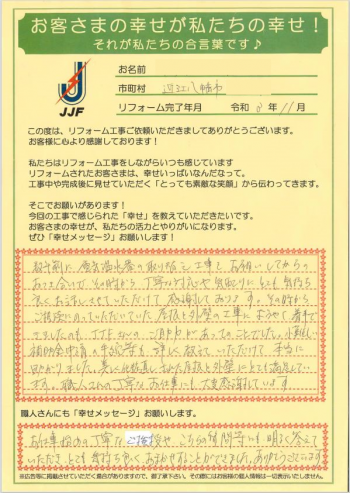 お客さまの幸せが私たちの幸せ！
それが私たちの合言葉です♪
JJF
お名前
市町村 近江八幡市
リフォーム完了年月 令和 年 11月
この度は、リフォーム工事ご依頼いただきましてありがとうございます。
お客様に心より感謝しております！
私たちはリフォーム工事をしながらいつも感じています
リフォームされたお客さまは、幸せいっぱいなんだなって。
工事中や完成後に見せていただく「とっても素敵な笑顔」から伝わってきます。
そこでお願いがあります！
今回の工事で感じられた「幸せ」を教えていただきたいです。
お客さまの幸せが、私たちの活力とやりがいになります。
ぜひ「幸せメッセージ」お願いします！
数年前に電気温水器の取り替え工事をお願いしてからの
お付き合いで、その時から丁寧な対応や気取りにも気持ち
良くお話しさせていただけて感謝しております。その時から
ご相談にのっていただいていた屋根と外壁の工事にようやく着手
できましたのも、JJFさんの ご助力があってのことでした。小難しい
補助金申請の手続等を詳しく教えていただけて本当に
助かりました。美しい 屋根と外壁にとても満足してい
ます。職人さんの丁寧なお仕事にも大変感謝しています
職人さんにも「幸せメッセージ」お願いします。
お仕事始めの丁寧な ご挨拶や、こちらの質問等にも明るく答えて
いただき、とても気持ち良くお任せすることができました。ありがとうございます
※広告等に掲載させていただく場合がありますので、御了承下さい。その際にはお客様の個人情報は一切表示いたしません。